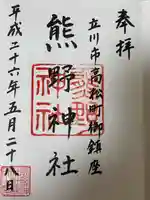 奉拝
立川市高松町御鎮座
熊野神社
平成二十六年五月二十八日